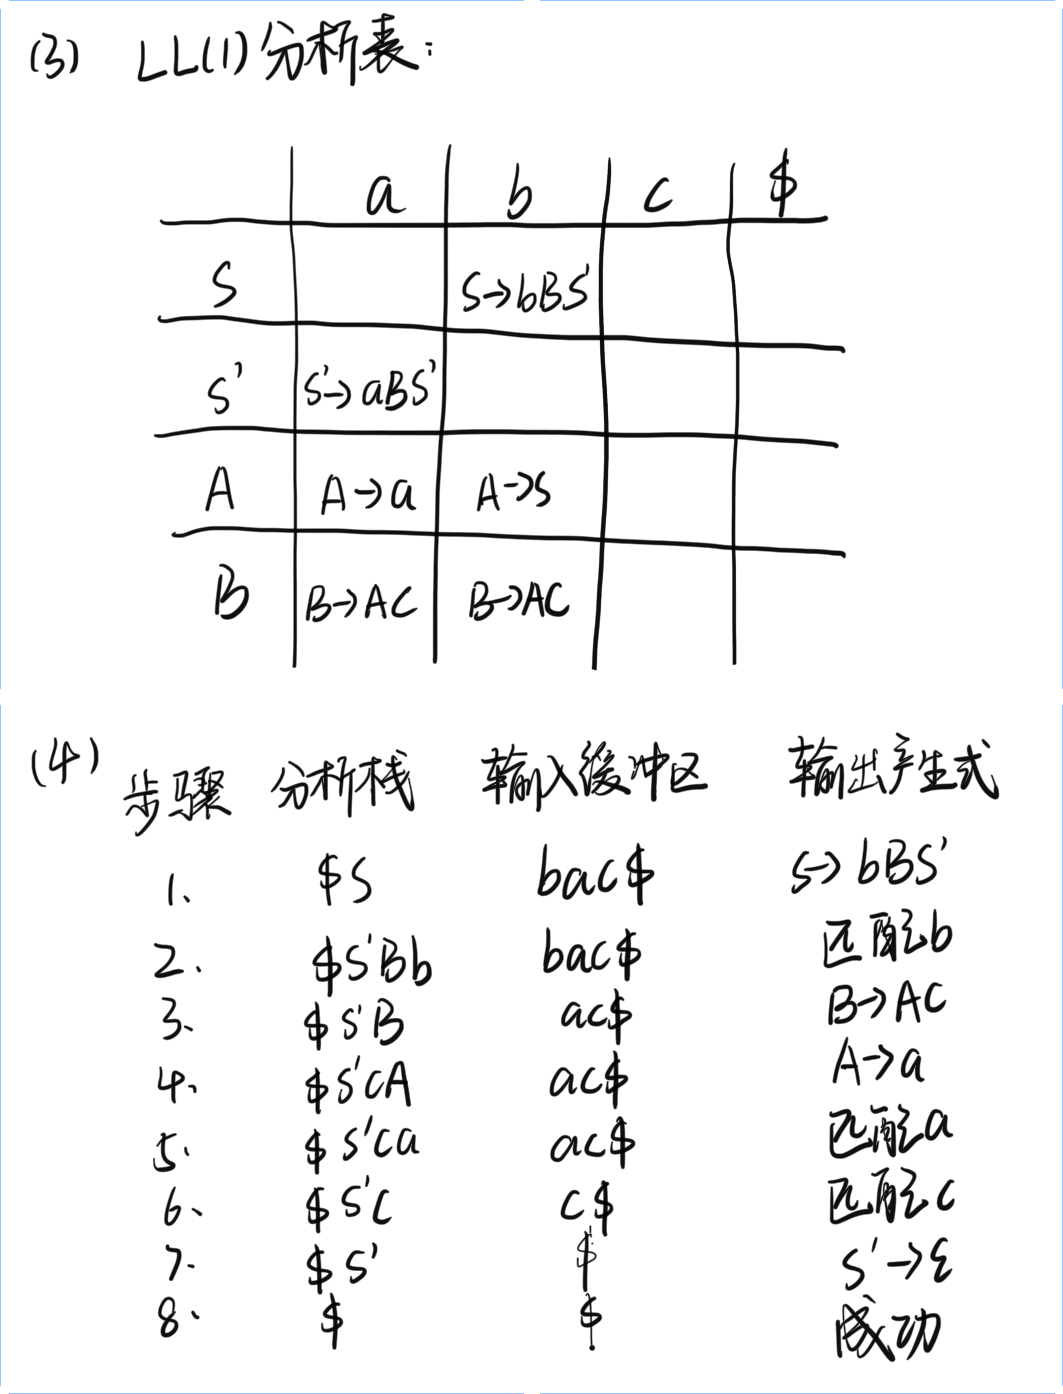 (3) LL(1)分析表:
a b c $
S S→bBS'
S' S'→aBS'
A A→a A→S
B B→AC B→AC
(4) 步骤 分析栈 输入缓冲区 输出产生式
1、 $S bac$ S→bBS'
2、 $S'Bb bac$ 匹配b
3、 $S'B ac$ B→AC
4、 $S'cA ac$ A→a
5、 $S'ca ac$ 匹配a
6、 $S'c c$ 匹配c
7、 $S' $ S'→ε
8、 $ $ 成功